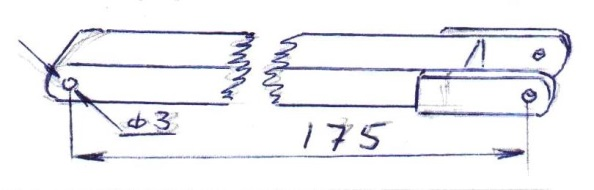 ф3
175